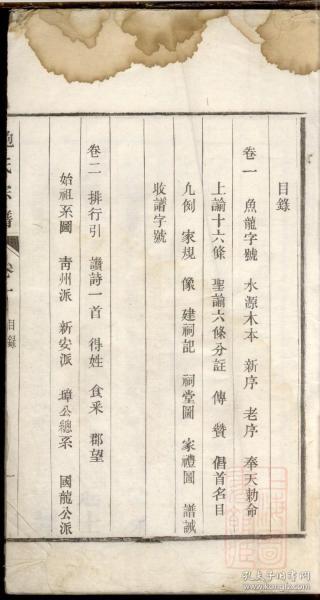 目錄
卷一 魚龍字號 水源木本 新序 老序 奉天勅命
上諭十六條 聖諭六條分註 傳 贊 倡首名目
凢例 家規 像 建祠記 祠堂圖 家禮圖 譜誡
收譜字號
卷二 排行引 讚詩一首 得姓 食采 郡望
始祖系圖 青州派 新安派 璋公總系 國龍公派
鮑氏宗譜 卷一 目錄
孔夫子旧书网